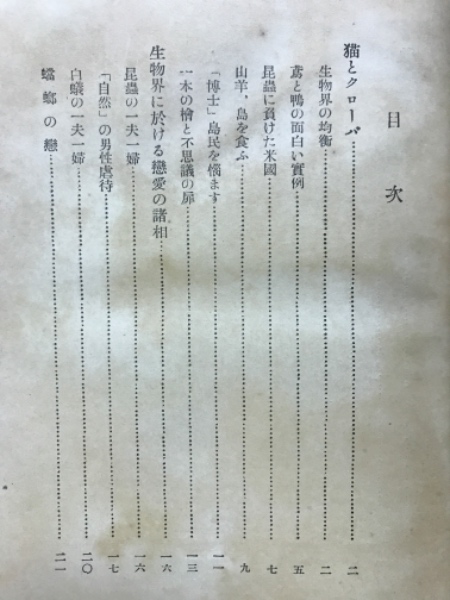 目次
猫とクローバ……二
生物界の均衡……二
鳶と鴨の面白い實例……五
昆蟲に負けた米國……七
山羊、島を食ふ……九
「博士」島民を惱ます……一一
一本の檜と不思議の扉……一三
生物界に於ける戀愛の諸相……一六
昆蟲の一夫一婦……一六
「自然」の男性虐待……一七
白蟻の一夫一婦……二〇
蟷螂の戀……二一